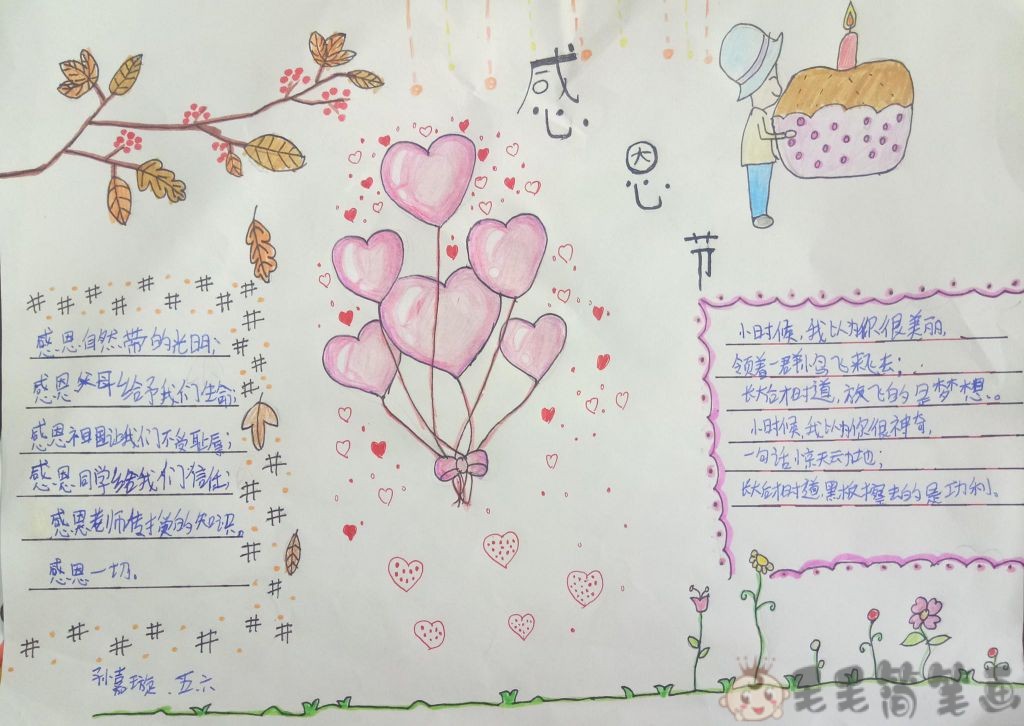 感恩节
感恩自然带的光明;
感恩父母给予我们生命;
感恩祖国让我们不受耻辱;
感恩同学给我们信任;
感恩老师传授的知识。
感恩一切。
孙嘉璇.五六
小时候,我以为你很美丽.
领着一群小鸟飞来飞去;
长大后才知道,放飞的是梦想.。
小时候,我以为你很神奇,
一句话惊天动地;
长大后才知道,黑板擦去的是功利。
毛毛简笔画